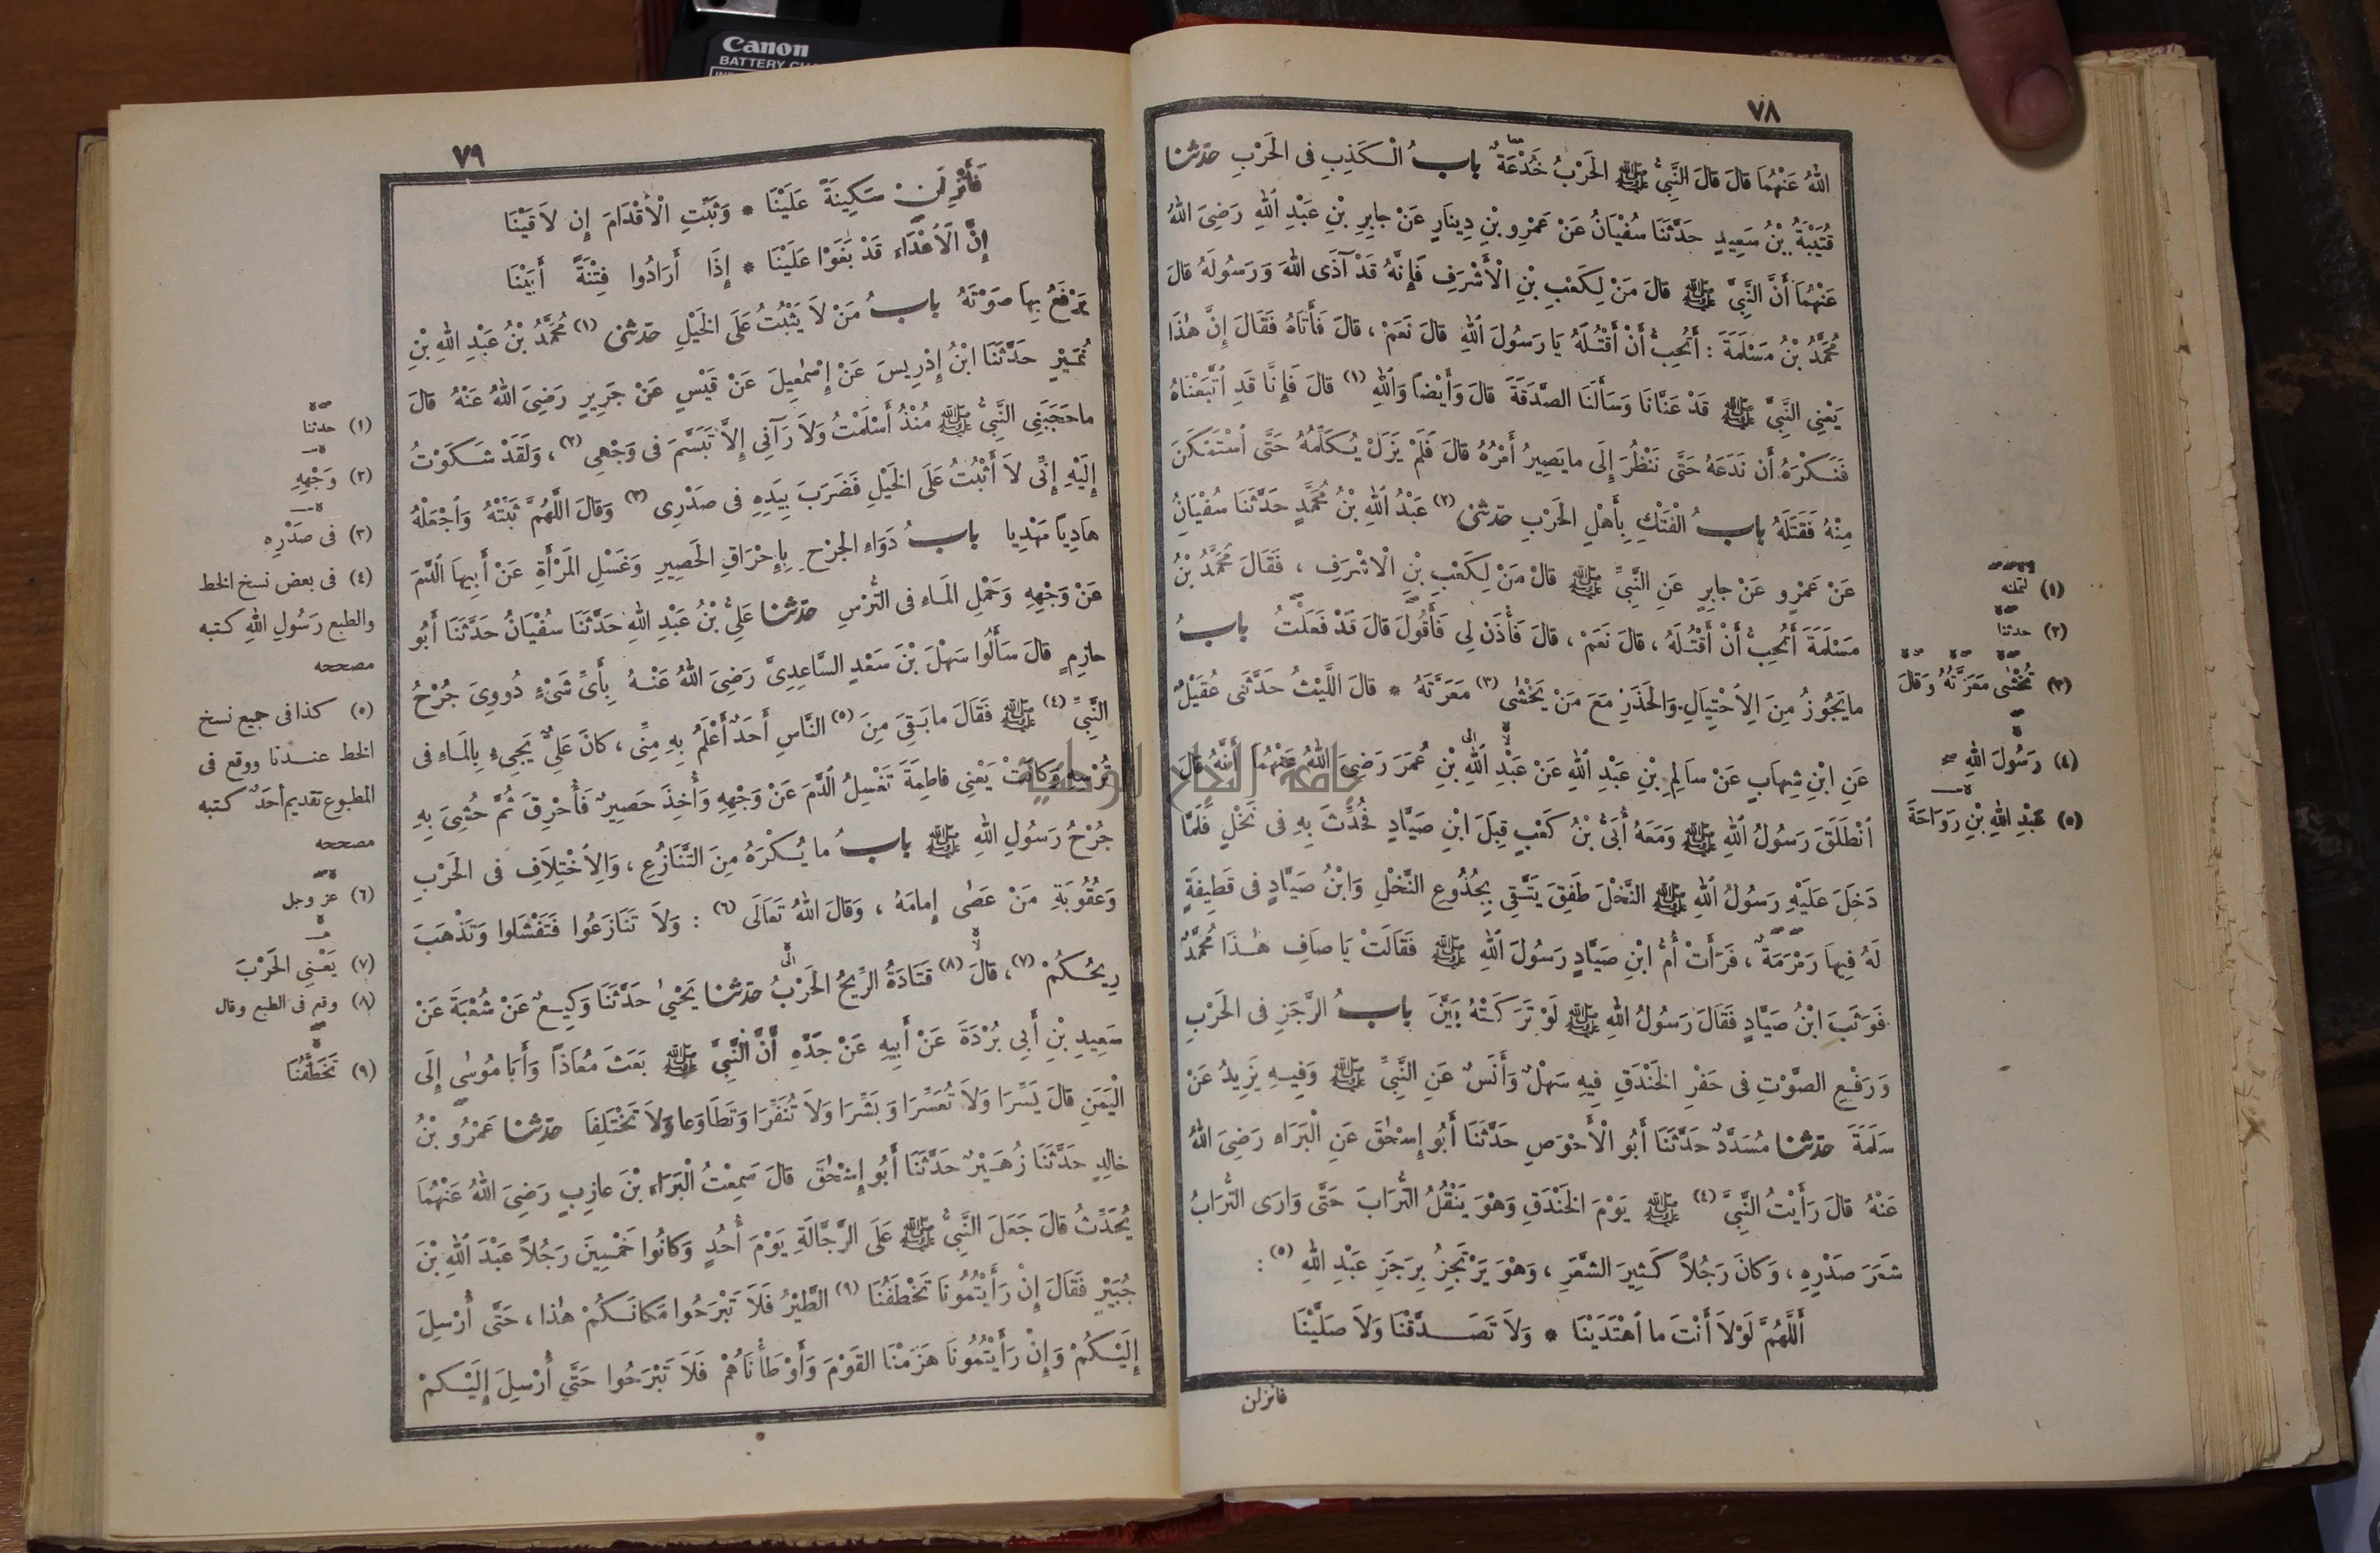 Canon
BATTERY
٧٨
اللهُ عَنْهُمَا قالَ قالَ النَّبِيُّ ﷺ الحَرْبُ خَُدْعَةٌ بابُ الْكَذِبِ فى الحَرْبِ حدّثنا
قُتَيْبَةُ بْنُ سَعِيدٍ حَدَّثَنَا سُفْيَانُ عَنْ عَمْرِو بْنِ دِينَارٍ عَنْ جابِرِ بْنِ عَبْدِ اللهِ رَضِىَ اللهُ
عَنْهُمَا أَنَّ النَّبِىَّ ﷺ قالَ مَنْ لِكَعْبِ بْنِ الْأَشْرَفِ فَإِنَّهُ قَدْ آذَى اللهَ وَرَسُولَهُ قالَ
مُحَمَّدُ بْنُ مَسْلَمَةَ : أَتُحِبُّ أَنْ أَقْتُلَهُ يَا رَسُولَ اللهِ قالَ نَعَمْ ، قالَ فَأَتَاهُ فَقَالَ إِنَّ هٰذَا
يَعْنِى النَّبِىَّ ﷺ قَدْ عَنَّانَا وَسَأَلَنَا الصَّدَقَةَ قالَ وَأَيْضًا وَاللهِ (١) قالَ فَإِنَّا قَدِ اتَّبَعْنَاهُ
فَنَكْرَهُ أَن نَدَعَهُ حَتَّى نَنْظُرَ إِلَى ما يَصِيرُ أَمْرُهُ قالَ فَلَمْ يَزَلْ يُكَلِّمُهُ حَتَّى اسْتَمْكَنَ
مِنْهُ فَقَتَلَهُ بابُ الْفَتْكِ بِأَهْلِ الحَرْبِ حدّثنى (٢) عَبْدُ اللهِ بْنُ مُحَمَّدٍ حَدَّثَنَا سُفْيَانُ
عَنْ عَمْرٍو عَنْ جابِرٍ عَنِ النَّبِىِّ ﷺ قالَ مَنْ لِكَعْبِ بْنِ الْأَشْرَفِ ، فَقَالَ مُحَمَّدُ بْنُ
مَسْلَمَةَ أَتُحِبُّ أَنْ أَقْتُلَهُ ، قالَ نَعَمْ ، قالَ فَأْذَنْ لِى فَأَقُولَ قالَ قَدْ فَعَلْتُ بابُ
ما يَجُوزُ مِنَ الِاحْتِيَالِ وَالحَذَرِ مَعَ مَنْ يَخْشٰى (٣) مَعَرَّتَهُ * قالَ اللَّيْثُ حَدَّثَنِى عُقَيْلٌ
عَنِ ابْنِ شِهَابٍ عَنْ سالِمِ بْنِ عَبْدِ اللهِ عَنْ عَبْدِ اللهِ بْنِ عُمَرَ رَضِىَ اللهُ عَنْهُمَا أَنَّهُ قالَ
انْطَلَقَ رَسُولُ اللهِ ﷺ وَمَعَهُ أُبَىُّ بْنُ كَعْبٍ قِبَلَ ابْنِ صَيَّادٍ فَحُدِّثَ بِهِ فى نَخْلٍ فَلَمَّا
دَخَلَ عَلَيْهِ رَسُولُ اللهِ ﷺ النَّخْلَ طَفِقَ يَتَّقِى بِجُذُوعِ النَّخْلِ وَابْنُ صَيَّادٍ فى قَطِيفَةٍ
لَهُ فِيهَا رَمْرَمَةٌ ، فَرَأَتْ أُمُّ ابْنِ صَيَّادٍ رَسُولَ اللهِ ﷺ فَقَالَتْ يَا صافِ هٰذَا مُحَمَّدٌ
فَوَثَبَ ابْنُ صَيَّادٍ فَقَالَ رَسُولُ اللهِ ﷺ لَوْ تَرَكَتْهُ بَيَّنَ بابُ الرَّجَزِ فى الحَرْبِ
وَرَفْعِ الصَّوْتِ فى حَفْرِ الخَنْدَقِ فِيهِ سَهْلٌ وَأَنَسٌ عَنِ النَّبِىِّ ﷺ وَفِيهِ يَزِيدُ عَنْ
سَلَمَةَ حدّثنا مُسَدَّدٌ حَدَّثَنَا أَبُو الْأَحْوَصِ حَدَّثَنَا أَبُو إِسْحٰقَ عَنِ الْبَرَاءِ رَضِىَ اللهُ
عَنْهُ قالَ رَأَيْتُ النَّبِىَّ (٤) ﷺ يَوْمَ الخَنْدَقِ وَهْوَ يَنْقُلُ التُّرَابَ حَتَّى وَارَى التُّرَابُ
شَعَرَ صَدْرِهِ ، وَكانَ رَجُلاً كَثِيرَ الشَّعَرِ ، وَهْوَ يَرْتَجِزُ بِرَجَزِ عَبْدِ اللهِ (٥) :
أَللَّهُمَّ لَوْلاَ أَنْتَ ما اهْتَدَيْنَا * وَلاَ تَصَدَّقْنَا وَلاَ صَلَّيْنَا
فانزلن
(١) لتملنه
(٢) حدثنا
(٣) تُخْشٰى مَعَرَّتُهُ وَقَالَ
(٤) رَسُولَ اللهِ
(٥) عَبْدِ اللهِ بْنِ رَوَاحَةَ
٧٩
فَأَنْزِلَنْ سَكِينَةً عَلَيْنَا * وَثَبِّتِ الْأَقْدَامَ إِن لاَقَيْنَا
إِنَّ الْأَعْدَاءَ قَدْ بَغَوْا عَلَيْنَا * إِذَا أَرَادُوا فِتْنَةً أَبَيْنَا
يَرْفَعُ بِهَا صَوْتَهُ بابُ مَنْ لاَ يَثْبُتُ عَلَى الخَيْلِ حدّثنى (١) مُحَمَّدُ بْنُ عَبْدِ اللهِ بْنِ
نُمَيْرٍ حَدَّثَنَا ابْنُ إِدْرِيسَ عَنْ إِسْمٰعِيلَ عَنْ قَيْسٍ عَنْ جَرِيرٍ رَضِىَ اللهُ عَنْهُ قالَ
ما حَجَبَنِى النَّبِىُّ ﷺ مُنْذُ أَسْلَمْتُ وَلاَ رَآنِى إِلاَّ تَبَسَّمَ فى وَجْهِى (٢) ، وَلَقَدْ شَكَوْتُ
إِلَيْهِ إِنِّى لاَ أَثْبُتُ عَلَى الخَيْلِ فَضَرَبَ بِيَدِهِ فى صَدْرِى (٣) وَقالَ اللَّهُمَّ ثَبِّتْهُ وَاجْعَلْهُ
هَادِيًا مَهْدِيا بابُ دَوَاءِ الجَرْحِ بِإِحْرَاقِ الحَصِيرِ وَغَسْلِ المَرْأَةِ عَنْ أَبِيهَا الدَّمَ
عَنْ وَجْهِهِ وَحَمْلِ المَاءِ فى التُّرْسِ حدّثنا عَلِىُّ بْنُ عَبْدِ اللهِ حَدَّثَنَا سُفْيَانُ حَدَّثَنَا أَبُو
حازِمٍ قالَ سَأَلُوا سَهْلَ بْنَ سَعْدٍ السَّاعِدِىَّ رَضِىَ اللهُ عَنْهُ بِأَىِّ شَىْءٍ دُووِىَ جُرْحُ
النَّبِىِّ (٤) ﷺ فَقَالَ ما بَقِىَ مِنَ (٥) النَّاسِ أَحَدٌ أَعْلَمُ بِهِ مِنِّى ، كانَ عَلِىٌّ يَجِىءُ بِالمَاءِ فى
تُرْسِهِ وَكانَتْ يَعْنِى فاطِمَةَ تَغْسِلُ الدَّمَ عَنْ وَجْهِهِ وَأُخِذَ حَصِيرٌ فَأُحْرِقَ ثُمَّ حُشِىَ بِهِ
جُرْحُ رَسُولِ اللهِ ﷺ بابُ ما يُكْرَهُ مِنَ التَّنَازُعِ ، وَالِاخْتِلاَفِ فى الحَرْبِ
وَعُقُوبَةِ مَنْ عَصٰى إِمامَهُ ، وَقالَ اللهُ تَعَالَى (٦) : وَلاَ تَنَازَعُوا فَتَفْشَلُوا وَتَذْهَبَ
رِيحُكُمْ (٧) ، قالَ (٨) قَتَادَةُ الرِّيحُ الحَرْبُ حدّثنا يَحْيٰى حَدَّثَنَا وَكِيعٌ عَنْ شُعْبَةَ عَنْ
سَعِيدِ بْنِ أَبِى بُرْدَةَ عَنْ أَبِيهِ عَنْ جَدِّهِ أَنَّ النَّبِىَّ ﷺ بَعَثَ مُعَاذًا وَأَبَا مُوسٰى إِلَى
الْيَمَنِ قالَ يَسِّرَا وَلاَ تُعَسِّرَا وَبَشِّرَا وَلاَ تُنَفِّرَا وَتَطَاوَعا وَلاَ تَخْتَلِفَا حدّثنا عَمْرُو بْنُ
خالِدٍ حَدَّثَنَا زُهَيْرٌ حَدَّثَنَا أَبُو إِسْحٰقَ قالَ سَمِعْتُ الْبَرَاءَ بْنَ عازِبٍ رَضِىَ اللهُ عَنْهُمَا
يُحَدِّثُ قالَ جَعَلَ النَّبِىُّ ﷺ عَلَى الرَّجَّالَةِ يَوْمَ أُحُدٍ وَكانُوا خَمْسِينَ رَجُلاً عَبْدَ اللهِ بْنَ
جُبَيْرٍ فَقَالَ إِنْ رَأَيْتُمُونَا تَخْطَفُنَا (٩) الطَّيْرُ فَلاَ تَبْرَحُوا مَكانَكُمْ هٰذَا ، حَتَّى أُرْسِلَ
إِلَيْكُمْ وَإِنْ رَأَيْتُمُونَا هَزَمْنَا القَوْمَ وَأَوْطَأْنَاهُمْ فَلاَ تَبْرَحُوا حَتَّى أُرْسِلَ إِلَيْكمْ
(١) حدثنا
(٢) وَجْهِهِ
(٣) فى صَدْرِهِ
(٤) فى بعض نسخ الخط
والطبع رَسُولِ اللهِ كتبه
مصححه
(٥) كذا فى جميع نسخ
الخط عندنا ووقع فى
المطبوع تقديم أحَدٌ كتبه
مصححه
(٦) عز وجل
(٧) يَعْنِى الحَرْبَ
(٨) وقع فى الطبع وقال
(٩) تَخَطَّفُنَا
جامعة النجاح الوطنية